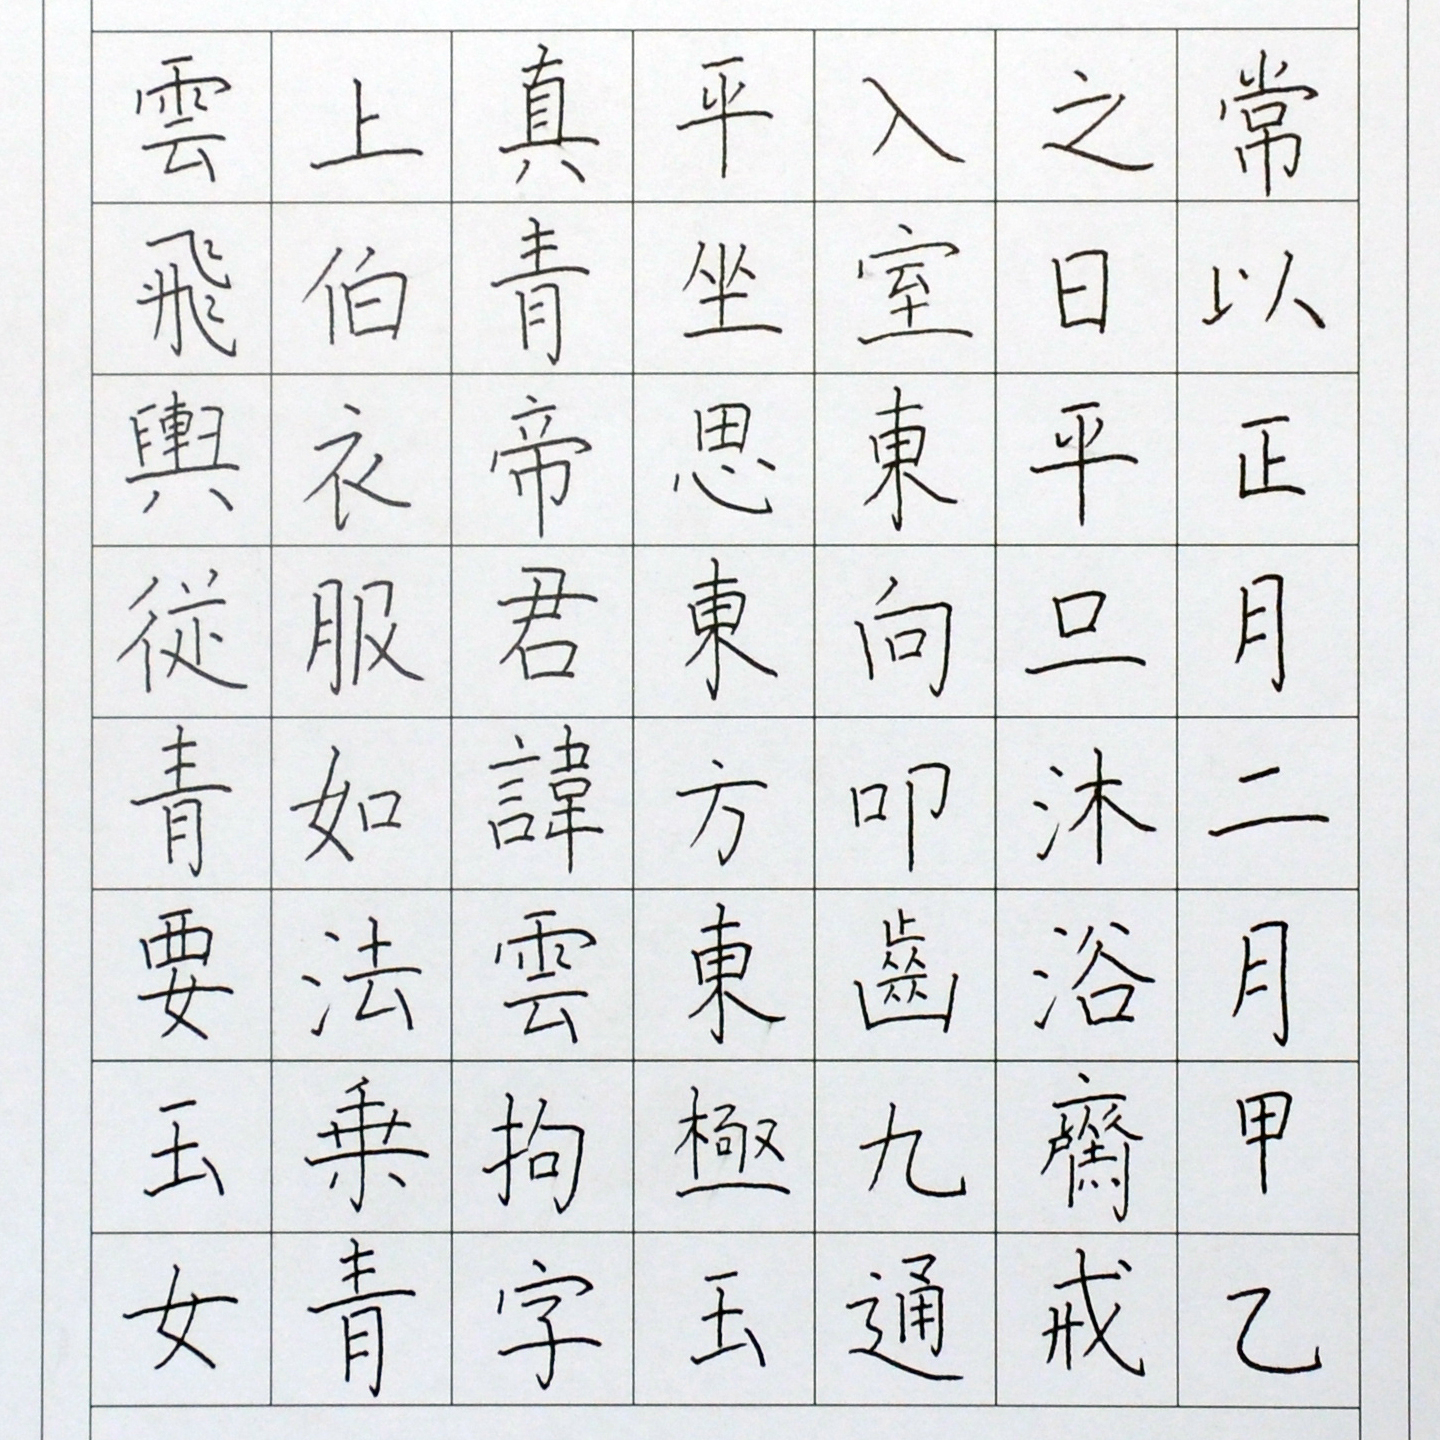 常以正月二月甲乙
之日平旦沐浴齋戒
入室東向叩齒九通
平坐思東方東極玉
真青帝君諱雲拘字
上伯衣服如法乗青
雲飛輿從青要玉女